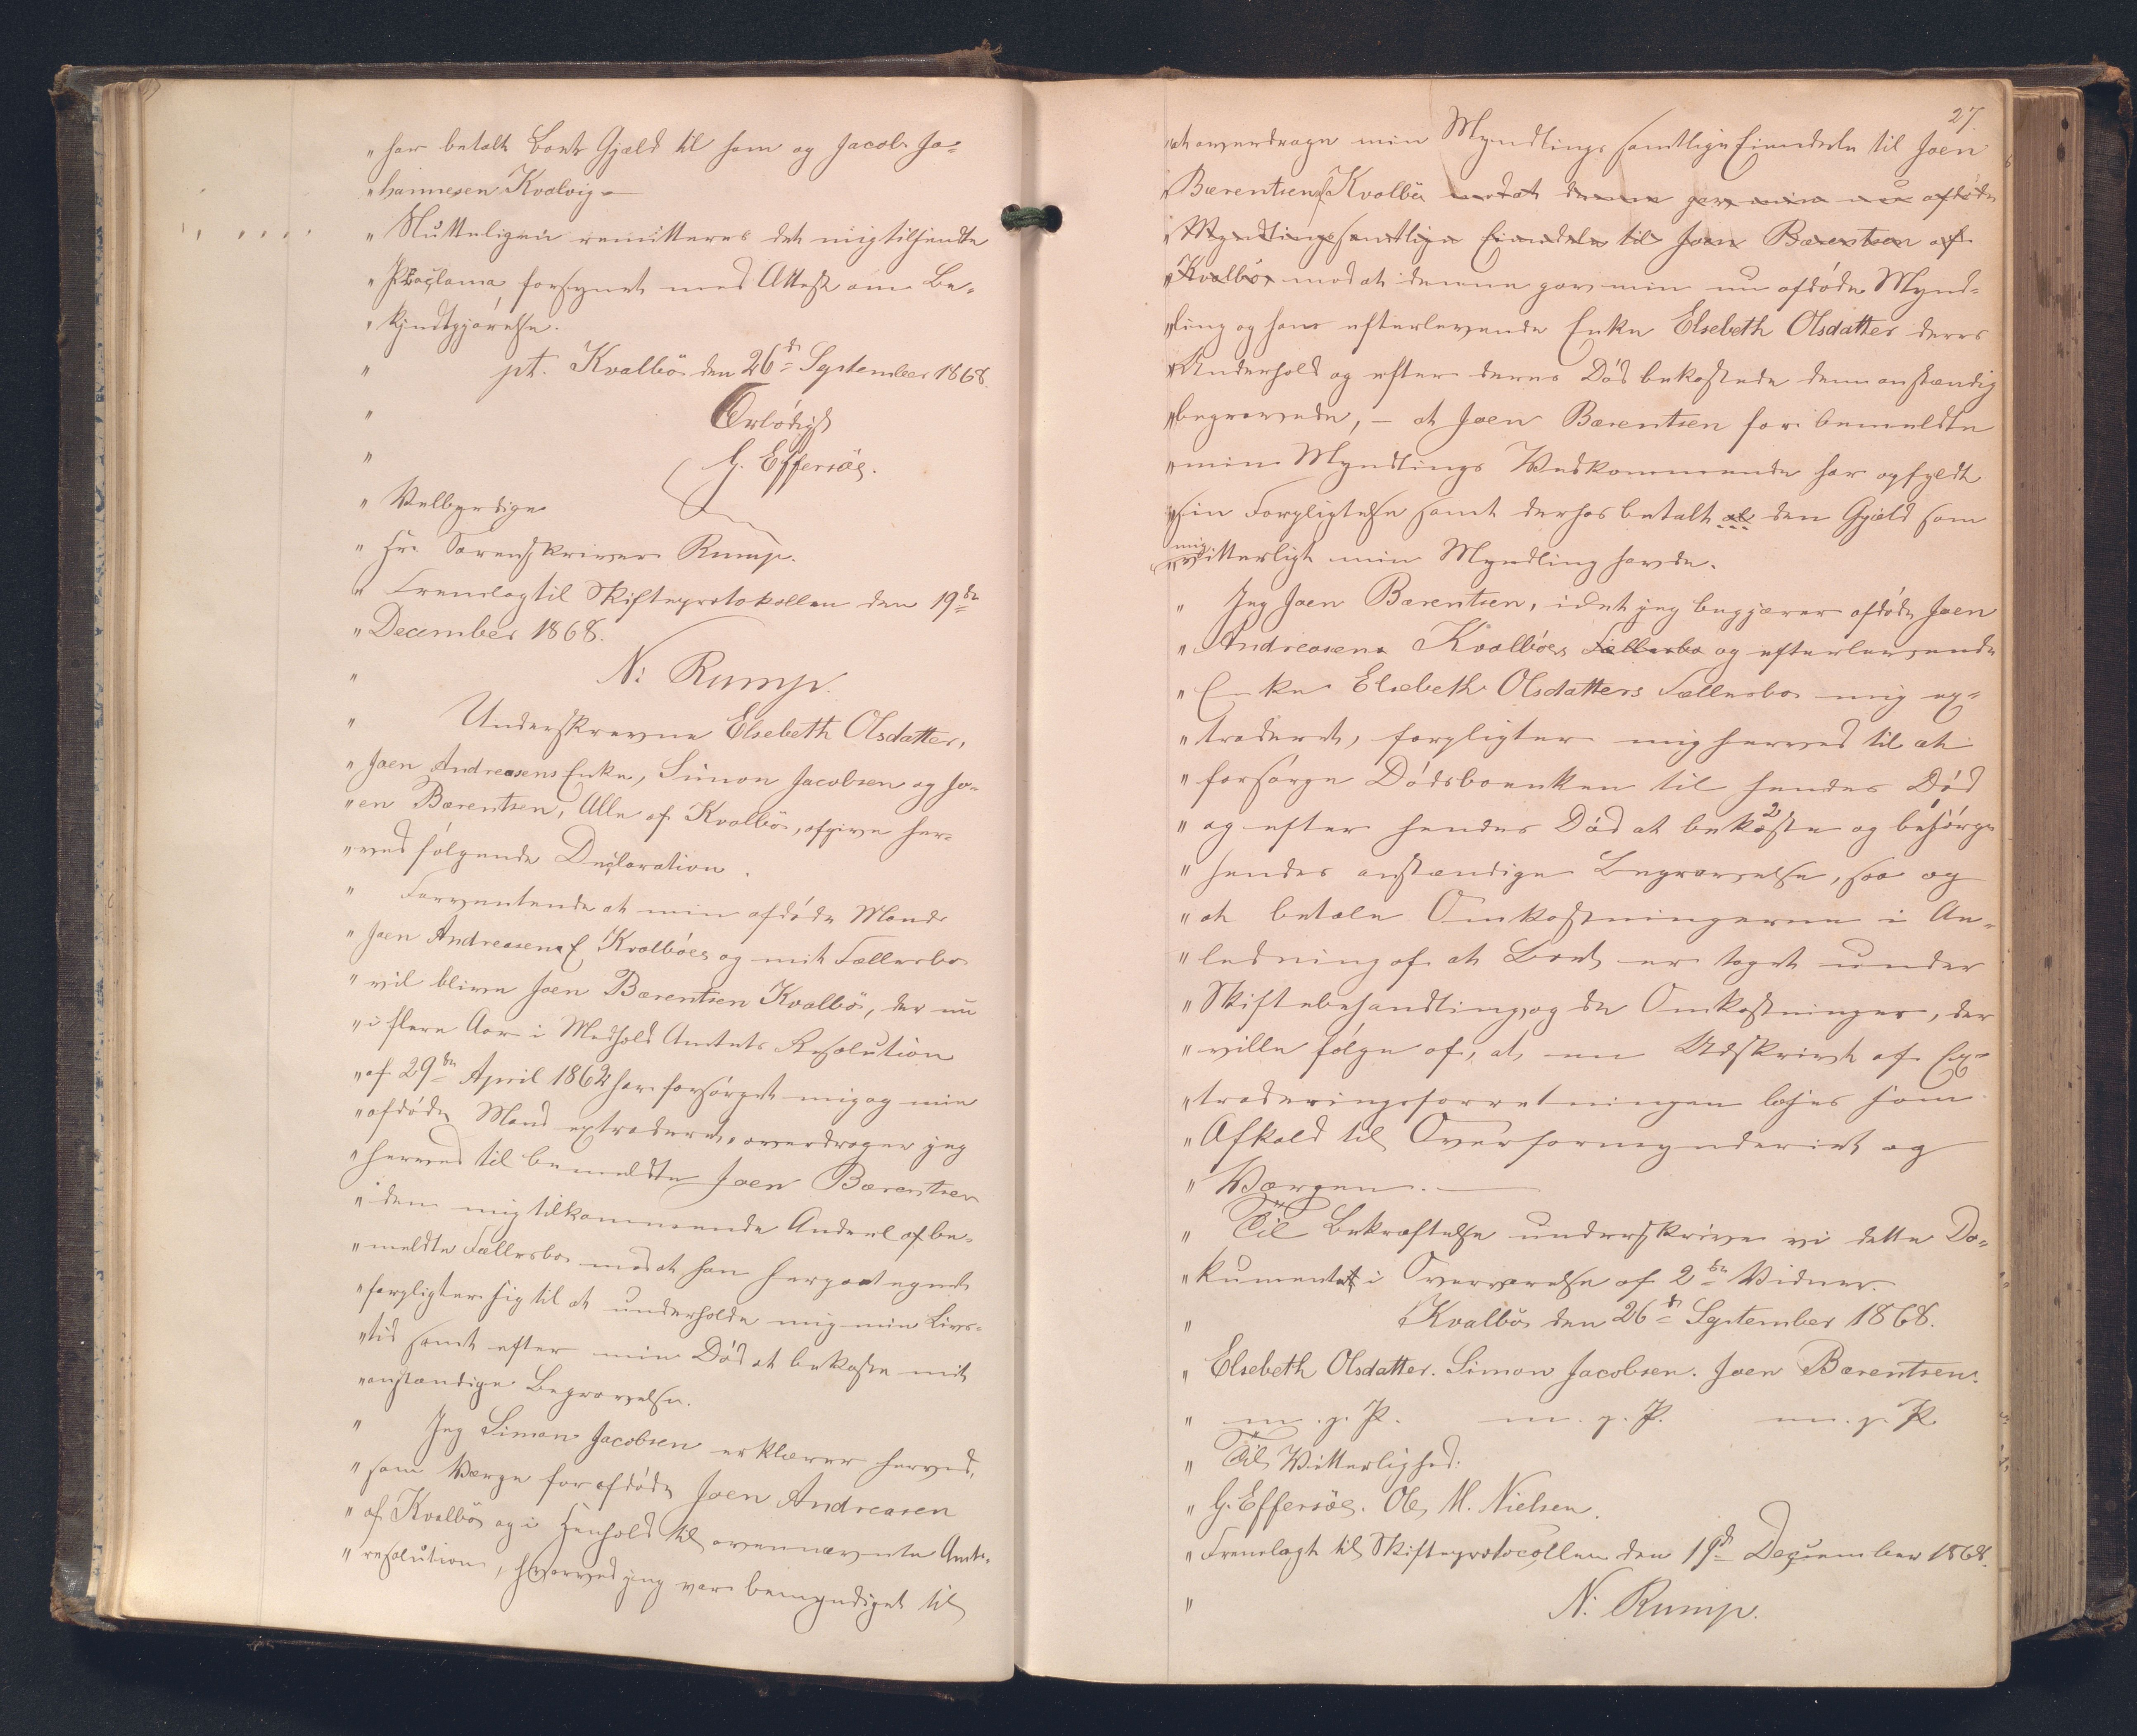 " har betalt Boets Gjæld til ham og Jacob Jo-
" hannesen Kvalvig. —
" Slutteligen remitteres det mig tilsendte
" Proclama forsynet med Attest om Be-
" kjendtgjørelse.
" pt. Kvalbö den 26de September 1868.
" Ærbødigst
" G. Effersöe.
" Velbyrdige
" Hr. Sorenskriver Rump.
" Fremlagt til Skifteprotokollen den 19de
" December 1868.
" N: Rump.
" Underskrevne Elsebeth Olsdatter,
" Joen Andreasens Enke, Simon Jacobsen og Jo-
" en Barentsen, Alle af Kvalbö, afgive her-
" ved følgende Declaration.
" Forventende at min afdøde Mands
" Joen Andreasens Kvalböes og mit Fællesbo
" vil blive Joen Barentsen Kvalbö, der nu
" i flere Aar i Medhold Amtets Resolution
" af 29de April 1862 har forsørget mig og min
" afdøde Mand extraderet, overdrager jeg
" herved til bemeldte Joen Barentsen
" den mig tilkommende Andeel af be-
" meldte Fællesbo mod at han herpaategnet
" forpligter sig til at underholde mig min Livs-
" tid samt efter min Død at bekoste mit
" anstændige Begravelse.
" Jeg Simon Jacobsen erklærer herved,
" som Værge for afdøde Joen Andreasen
" af Kvalbö og i Henhold til ovennævnte Amts-
" resolution, hvorved jeg var bemyndiget til
27.
" at overdrage min Myndlings samtlige Eiendele til Joen
" Barentsen Kvalbö modat denne gav min nu afdøde
" Myndlings samtlige Eiendele til Joen Barentsen af
" Kvalbö mod at denne gav min nu afdøde Mynd-
" ling og hans efterlevende Enke Elsebeth Olsdatter deres
" Underhold og efter deres Død bekostede dem anstændig
" begravede, — at Joen Barentsen for bemeldte
" min Myndlings Vedkommende har opfyldt
" sin Forpligtelse samt derhos betalt al den Gjæld som
" mig vitterligt min Myndling havde.
" Jeg Joen Barentsen, idet jeg begjærer afdøde Joen
" Andreasens Kvalböes Fællesbo og efterlevende
" Enke Elsebeth Olsdatters Fællesbo mig ex-
" traderet, forpligter mig herved til at
" forsørge Dødsboenken til hendes Død
" og efter hendes Død at bekoste og besørge
" hendes anstændige Begravelse, saa og
" at betale Omkostningerne i An-
" ledning af at Boet er taget under
" Skiftebehandling, og de Omkostninger, der
" ville følge af, at en Udskrivt af Ex-
" traderingsforretningen løses som
" Afkald til Overformynderiet og
" Værgen. —
" Til Bekræftelse underskrive vi dette Do-
" kument i Overværelse af 2de Vidner.
" Kvalbö den 26de September 1868.
" Elsebeth Olsdatter. Simon Jacobsen. Joen Barentsen.
" m. p. P. m. p. P. m. p. P.
" Til Vitterlighed:
" G. Effersöe. Ole M. Nielsen.
" Fremlagt til Skifteprotocollen den 19de December 1868.
" N: Rump.